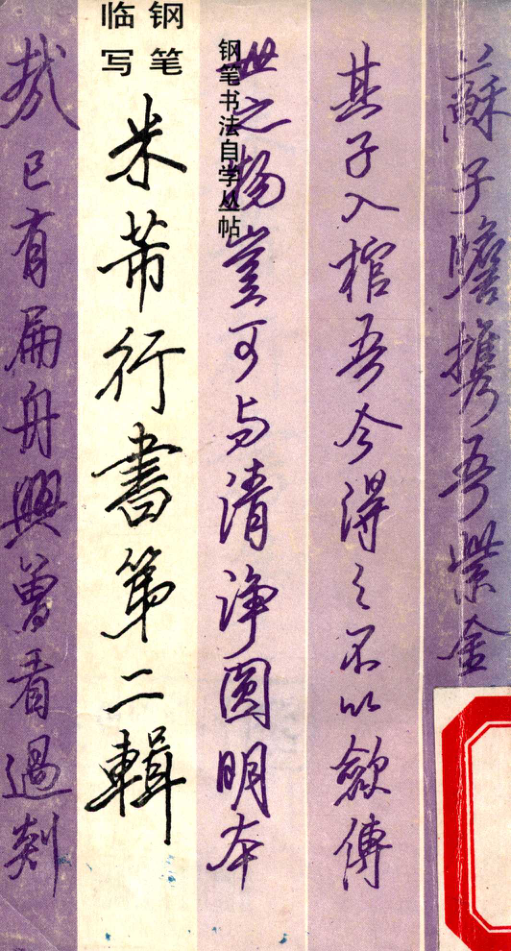 蘇子瞻携吾紫金
其子入棺吾今得之不以歛傳
世之物豈可与清净圆明本
钢笔书法自学丛帖
钢笔
临写
米芾行書第二輯
哉已有扁舟興曾看過剡